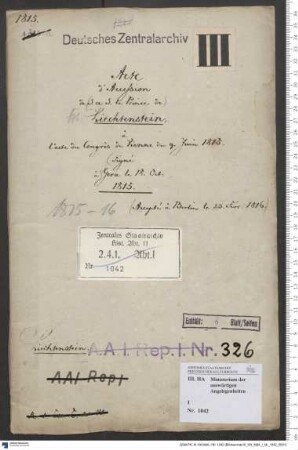 1815.
Deutsches Zentralarchiv
III
Acte
d'Accession
de S. A. S. le Prince de
Liechtenstein
à
l'acte du Congrès de Vienne du 9 Juin 1815.
(Signé
à le 18. Oct.
1815.
1815-16 (Accepté à Berlin le 1816)
Zentrales Staatsarchiv
Hist. Abt. II
2.4.1. Abt. I
Nr. 1042
Enthält: Blatt/Seiten
Liechtenstein A A I. Rep. I. Nr. 326
AAI Rep I
III. HA Ministerium der
auswärtigen
Angelegenheiten
I
Nr. 1042